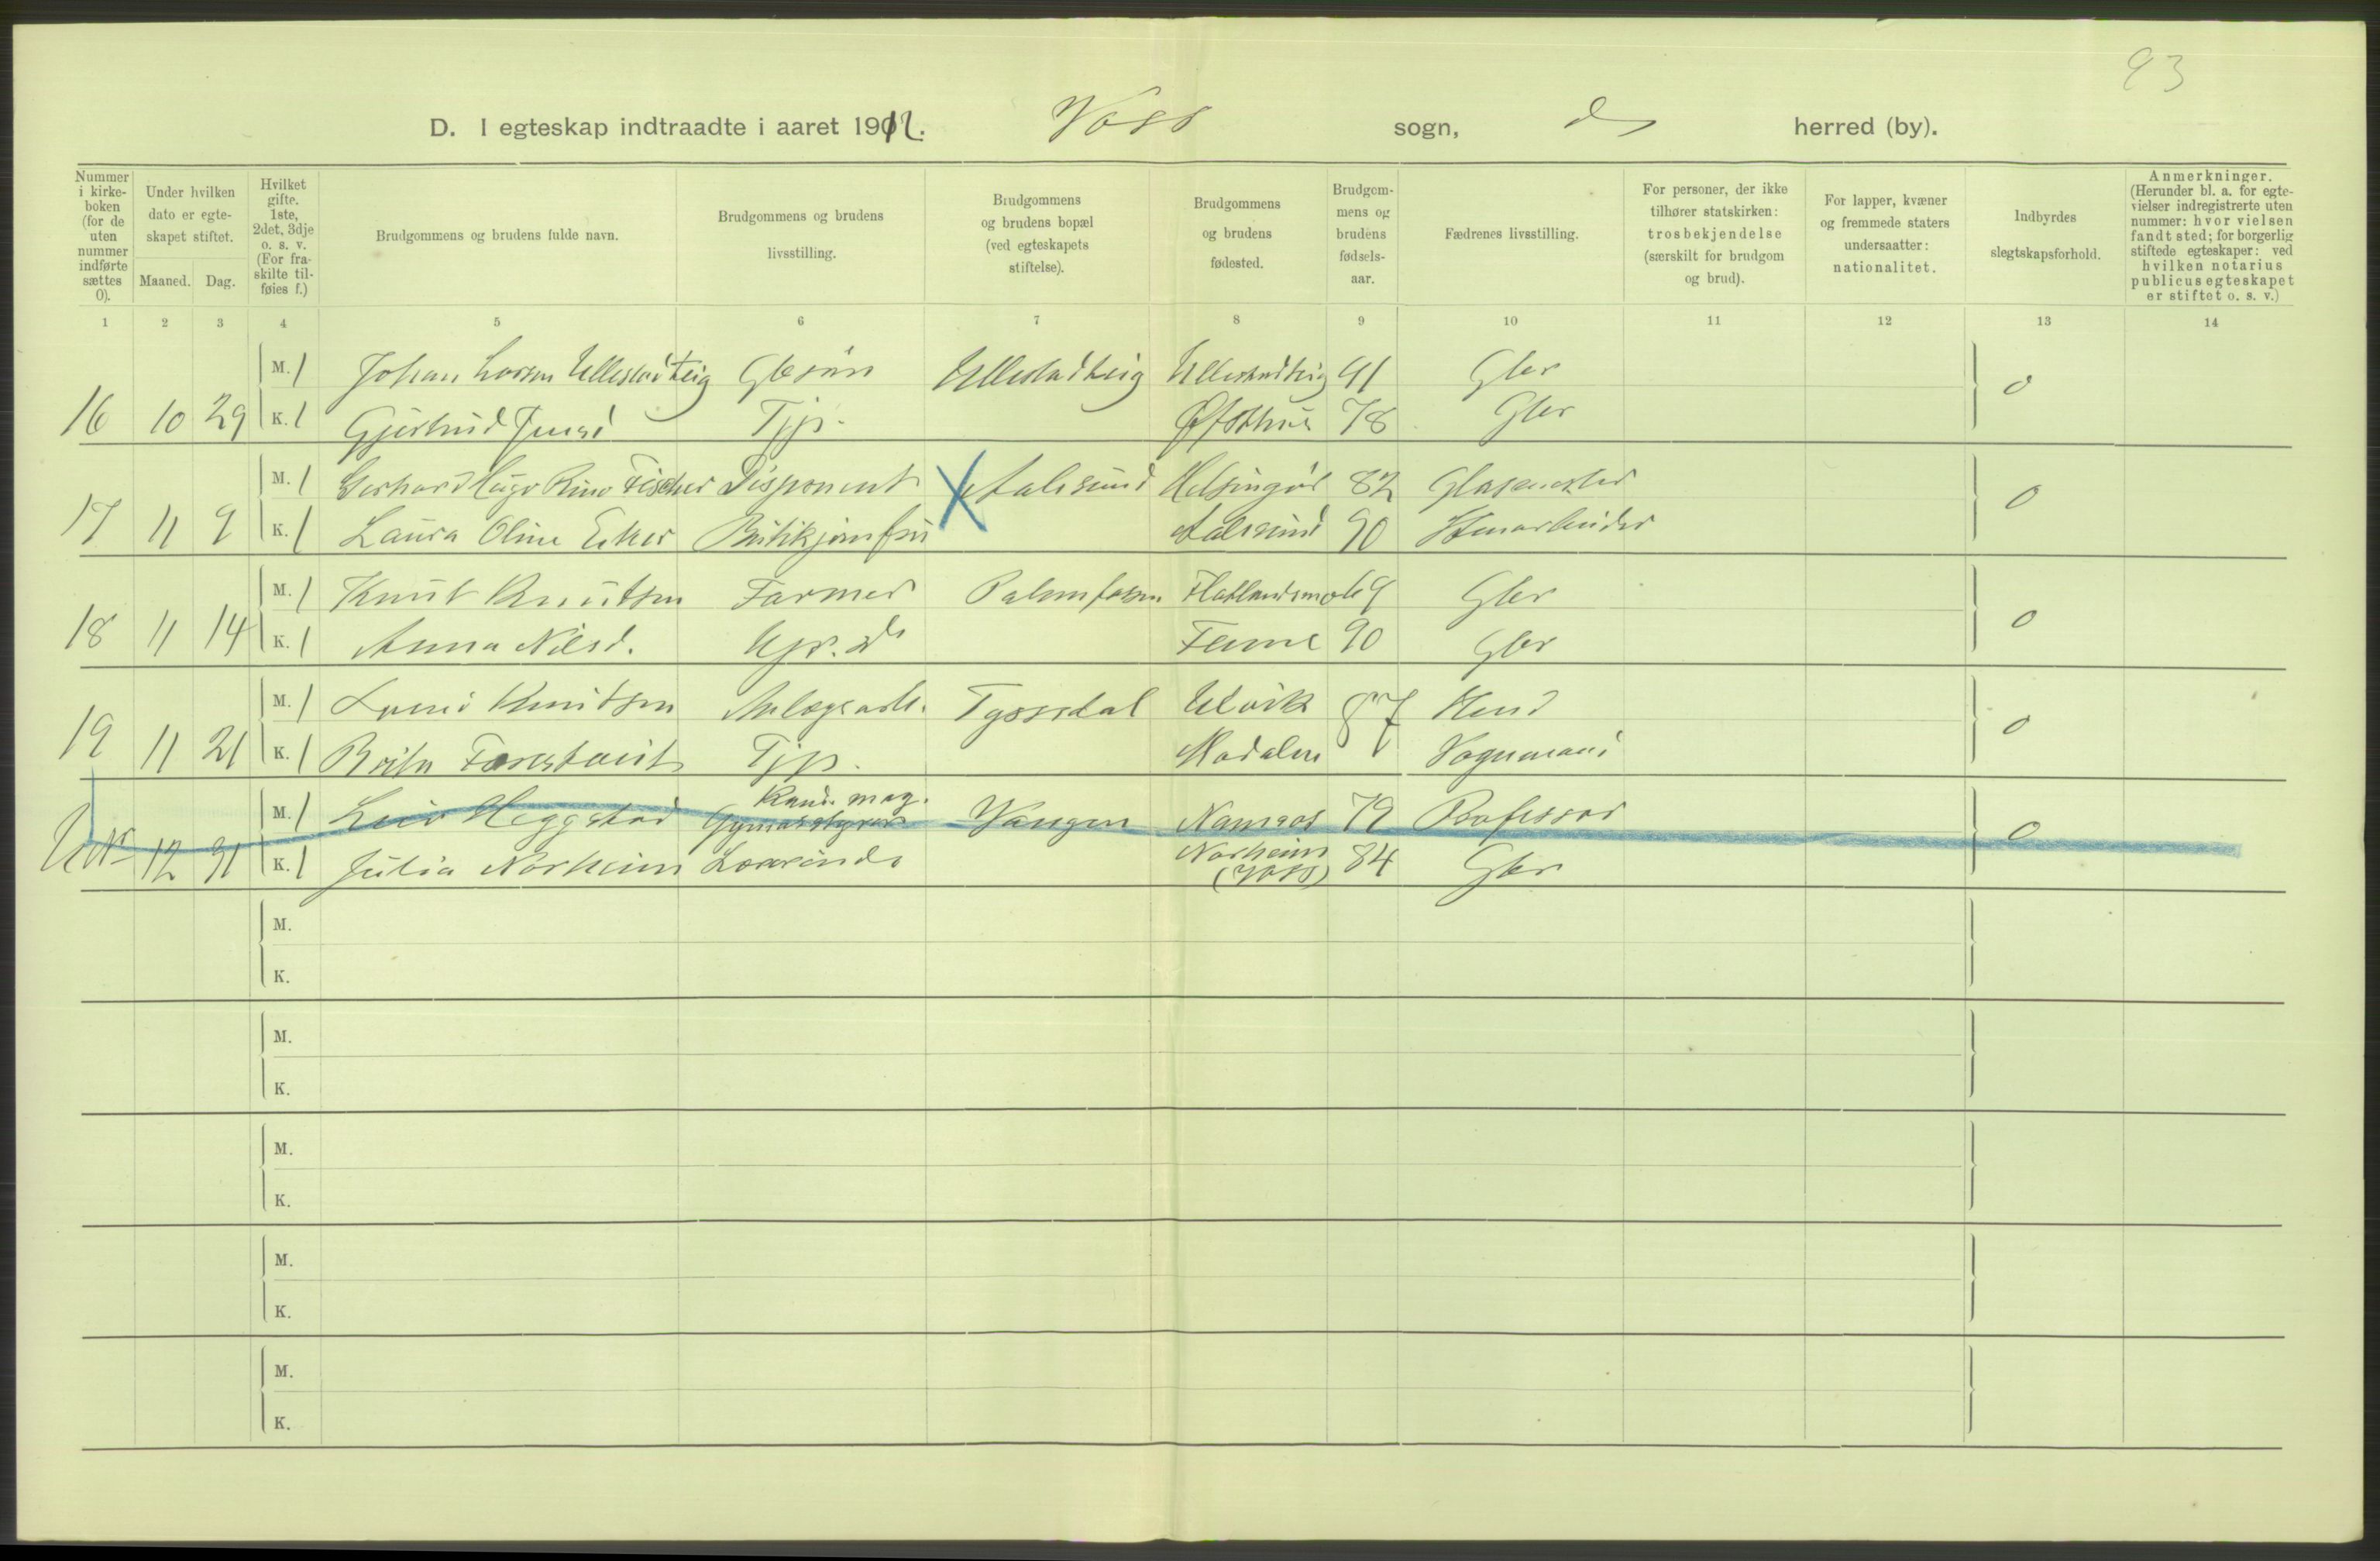 93
D. I egteskap indtraadte i aaret 1912. Voss sogn, do herred (by).
Nummer i kirkeboken (for de uten nummer indførte sættes 0).
Under hvilken dato er egteskapet stiftet.
Maaned. Dag.
Hvilket gifte. 1ste, 2det, 3dje o. s. v. (For fraskilte tilføies f.)
Brudgommens og brudens fulde navn.
Brudgommens og brudens livsstilling.
Brudgommens og brudens bopæl (ved egteskapets stiftelse).
Brudgommens og brudens fødested.
Brudgommens og brudens fødselsaar.
Fædrenes livsstilling.
For personer, der ikke tilhører statskirken: trosbekjendelse (særskilt for brudgom og brud).
For lapper, kvæner og fremmede staters undersaatter: nationalitet.
Indbyrdes slegtskapsforhold.
Anmerkninger. (Herunder bl. a. for egtevielser indregistrerte uten nummer: hvor vielsen fandt sted; for borgerlig stiftede egteskaper: ved hvilken notarius publicus egteskapet er stiftet o. s. v.)
1 2 3 4 5 6 7 8 9 10 11 12 13 14
M. 1 Johan Larsen Ullestadteig Gbrsøn Ullestadteig Ullestadteig 41 Gbr 0
16 10 29 K. 1 Gjertrud Tjp. 78 Gbr
M. 1 Gerhard Hugo Fischer Disponent X Aalesund Helsingør 82 Glasmester 0
17 11 9 K. 1 Laura Oline Butikjomfru Aalesund 90 Stenarbeider
M. 1 Knut Knutsen Farmer Flatlandsmo 69 Gbr 0
18 11 14 K. 1 Anna Nilsd. Femme 90 Gbr
M. 1 Knutsen Anlægsarb. Tyssedal Ulvik 87 0
19 11 21 K. 1 Brita Tjp. Modalen Vognmand
M. 1 Leiv Heggstad Kand. mag. Vangen Namsos 79 Professor 0
12 31 K. 1 Julia Norheim Lærerinde Norheim (Voss) 84 Gbr
M.
K.
M.
K.
M.
K.
M.
K.
M.
K.